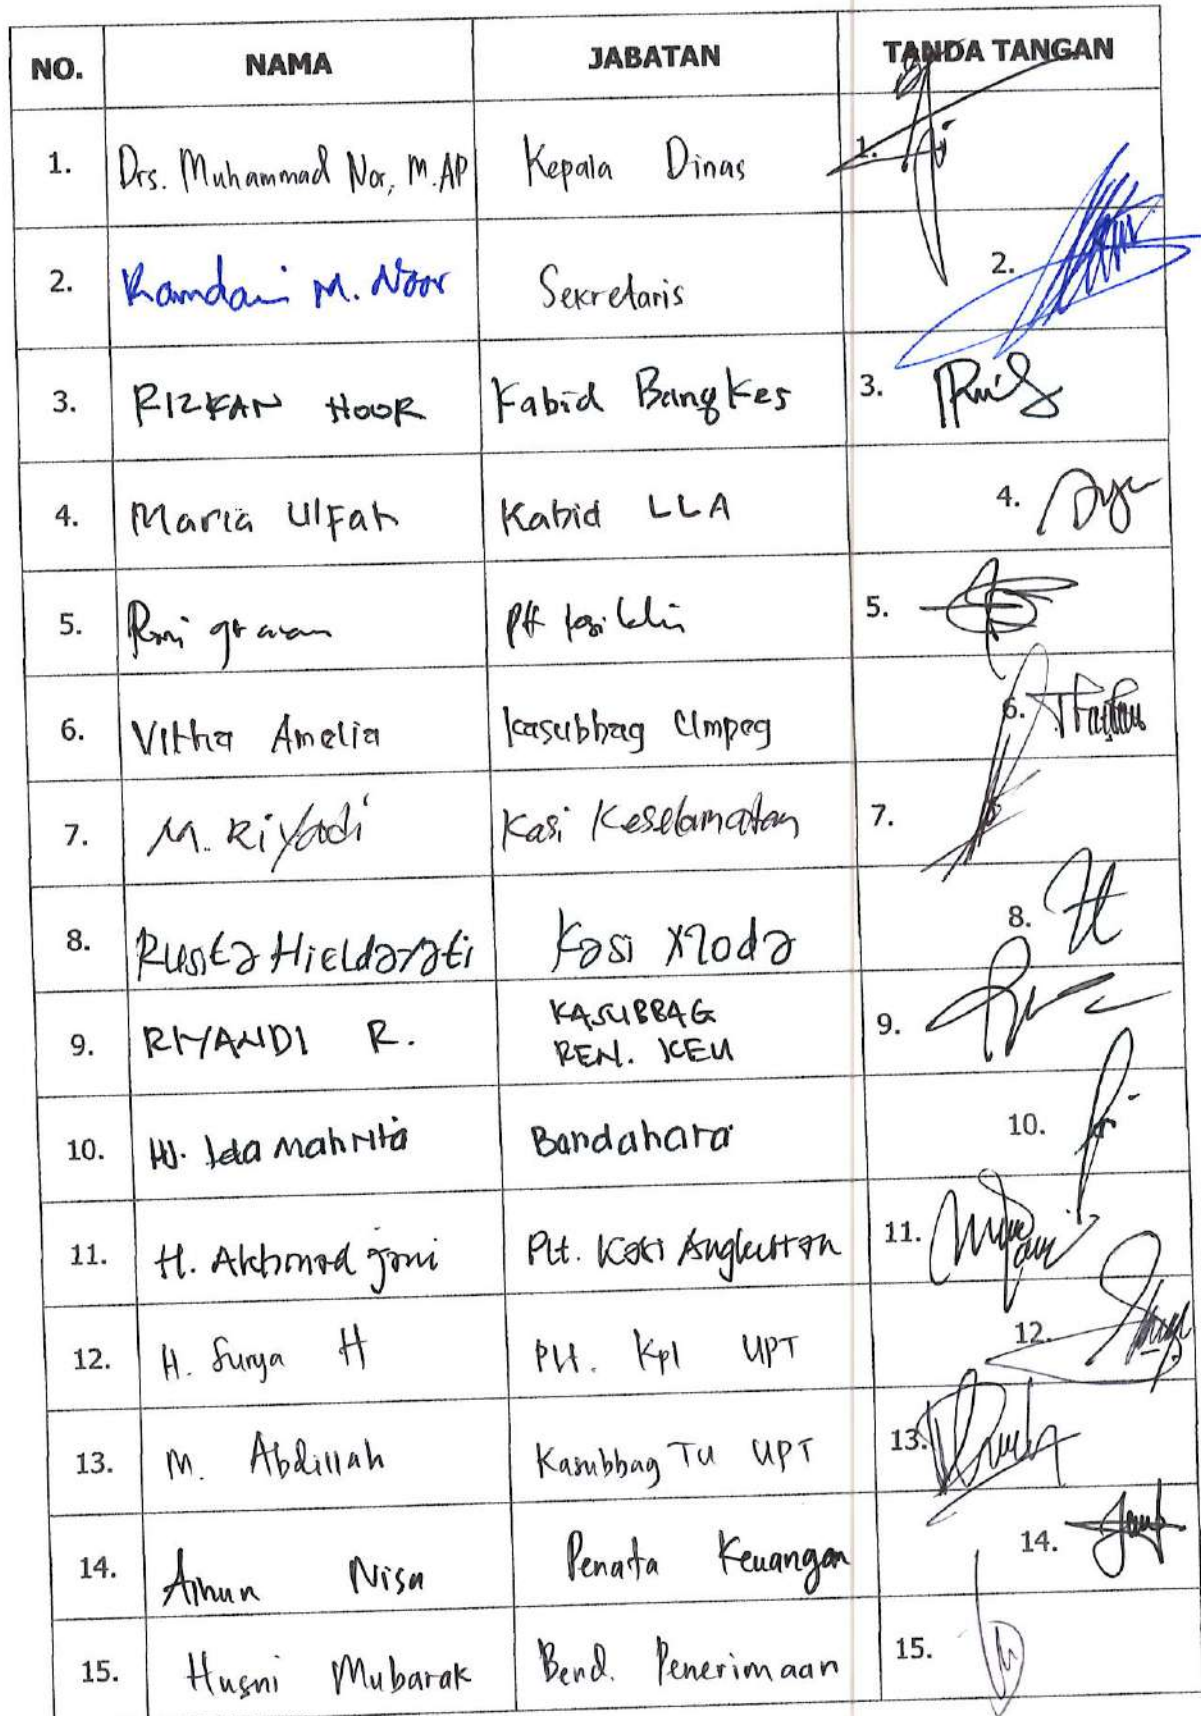 NO. NAMA JABATAN TANDA TANGAN
1. Drs. Muhammad Nor, M.AP Kepala Dinas 1.
2. Ramdani M. Noor Sekretaris 2.
3. RIZKAN NOOR Kabid Bangkes 3.
4. Maria Ulfah Kabid LLA 4.
5. 5.
6. Vitha Amelia Kasubbag Umpeg 6.
7. M. Riyadi Kasi Keselamatan 7.
8. Kasi 8.
9. RIYANDI R. KASUBBAG 9.
REN. KEU
10. Hj. Ida Mahrita Bandahara 10.
11. H. Akhmad Joni Plt. Kasi Angkutan 11.
12. H. Surya H Plt. Kpl UPT 12.
13. M. Abdillah Kasubbag TU UPT 13.
14. Ainun Nisa Penata Keuangan 14.
15. Husni Mubarak Bend. Penerimaan 15.